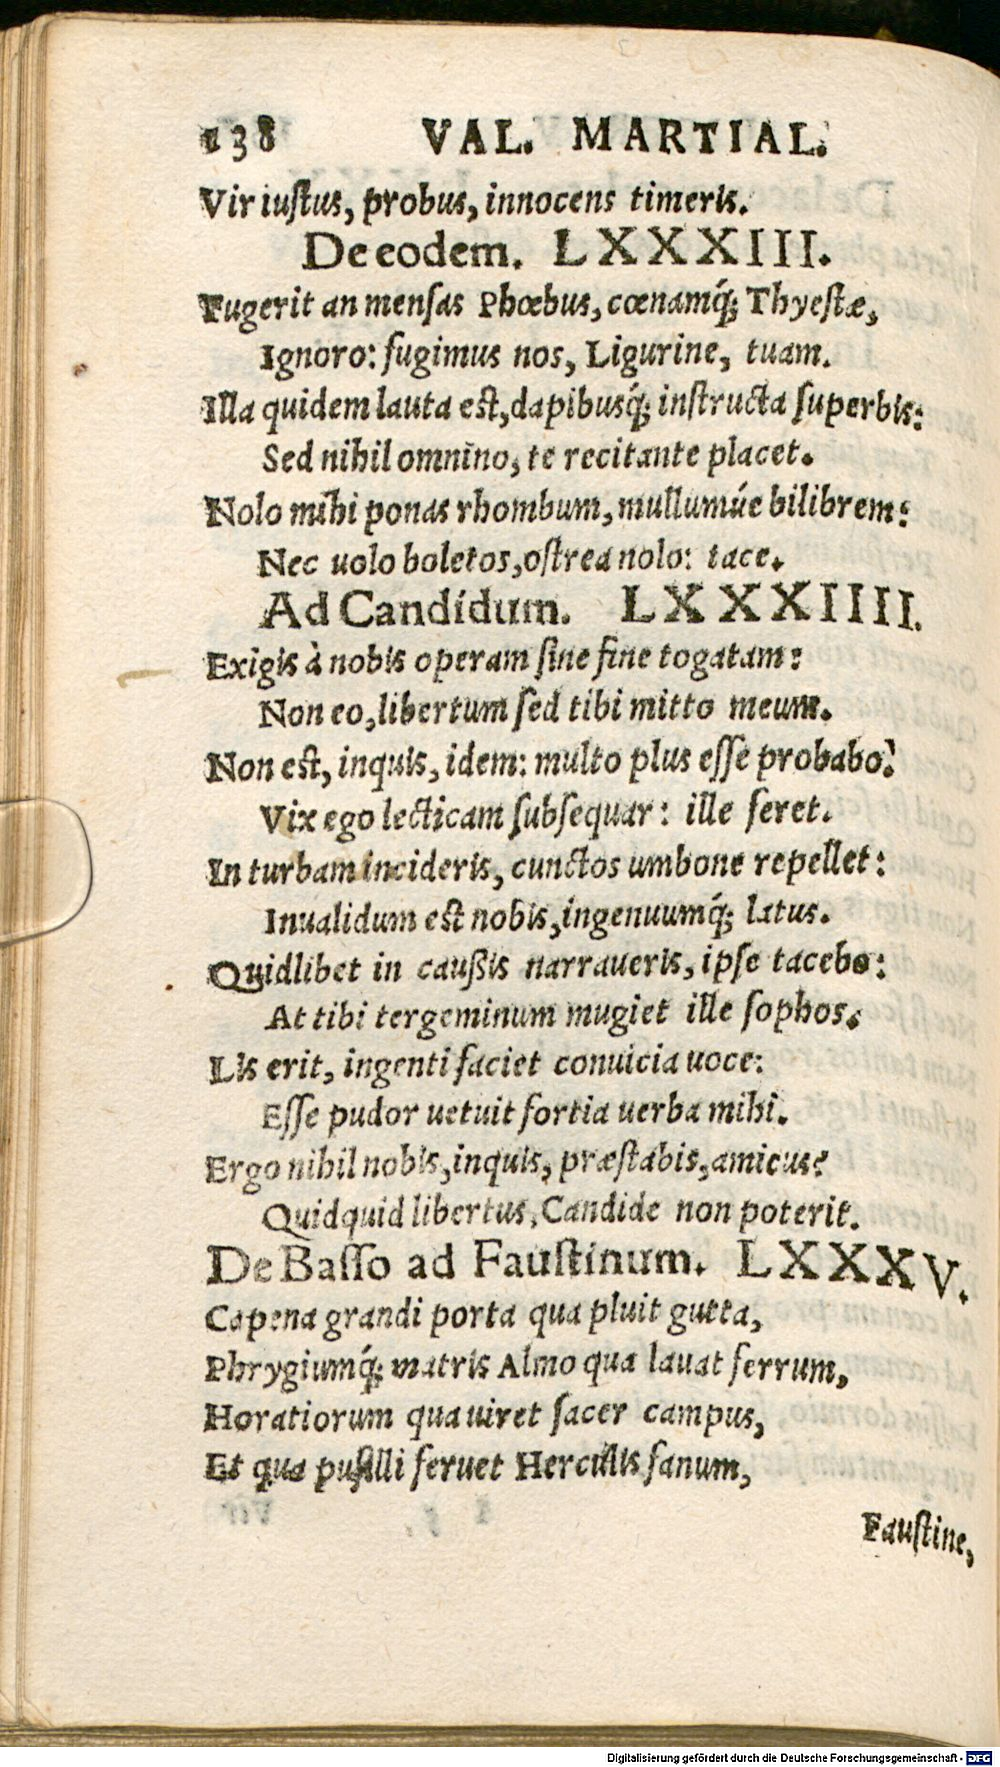 138 VAL. MARTIAL.
Vir iustus, probus, innocens timeris.
De eodem. LXXXIII.
Fugerit an mensas Phœbus, cœnamq́; Thyestæ,
Ignoro: fugimus nos, Ligurine, tuam.
Illa quidem lauta est, dapibusq́; instructa superbis:
Sed nihil omnino, te recitante placet.
Nolo mihi ponas rhombum, mullumúe bilibrem:
Nec uolo boletos, ostrea nolo: tace.
Ad Candidum. LXXXIIII.
Exigis à nobis operam sine fine togatam:
Non eo, libertum sed tibi mitto meum.
Non est, inquis, idem: multo plus esse probabo?
Vix ego lecticam subsequar: ille feret.
In turbam incideris, cunctos umbone repellet:
Inualidum est nobis, ingenuumq́; latus.
Quidlibet in caußis narraueris, ipse tacebo:
At tibi tergeminum mugiet ille sophos.
Lis erit, ingenti faciet conuicia uoce:
Esse pudor uetuit fortia uerba mihi.
Ergo nihil nobis, inquis, præstabis, amicus?
Quidquid libertus, Candide non poterit.
De Basso ad Faustinum. LXXXV.
Capena grandi porta qua pluit gutta,
Phrygiumq́; matris Almo qua lauat ferrum,
Horatiorum qua uiret sacer campus,
Et qua pusilli feruet Herculis fanum,
Faustine,
Digitalisierung gefördert durch die Deutsche Forschungsgemeinschaft - DFG